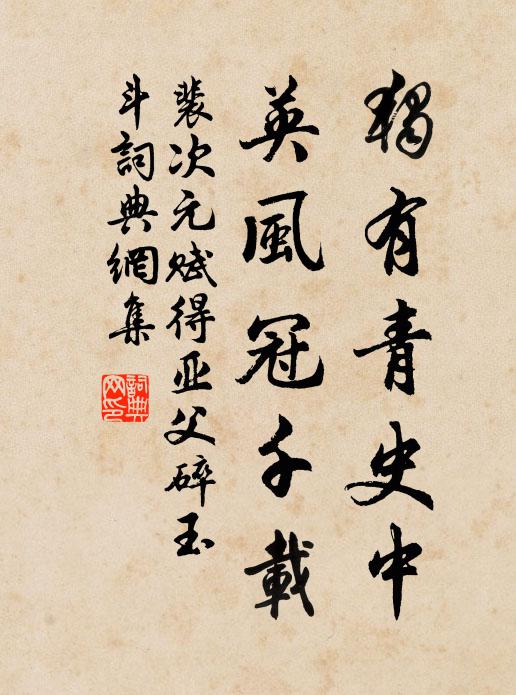 獨有青史中
英風冠千載
裴次元賦得亚父碎玉
斗詞典網集
詞典
网印